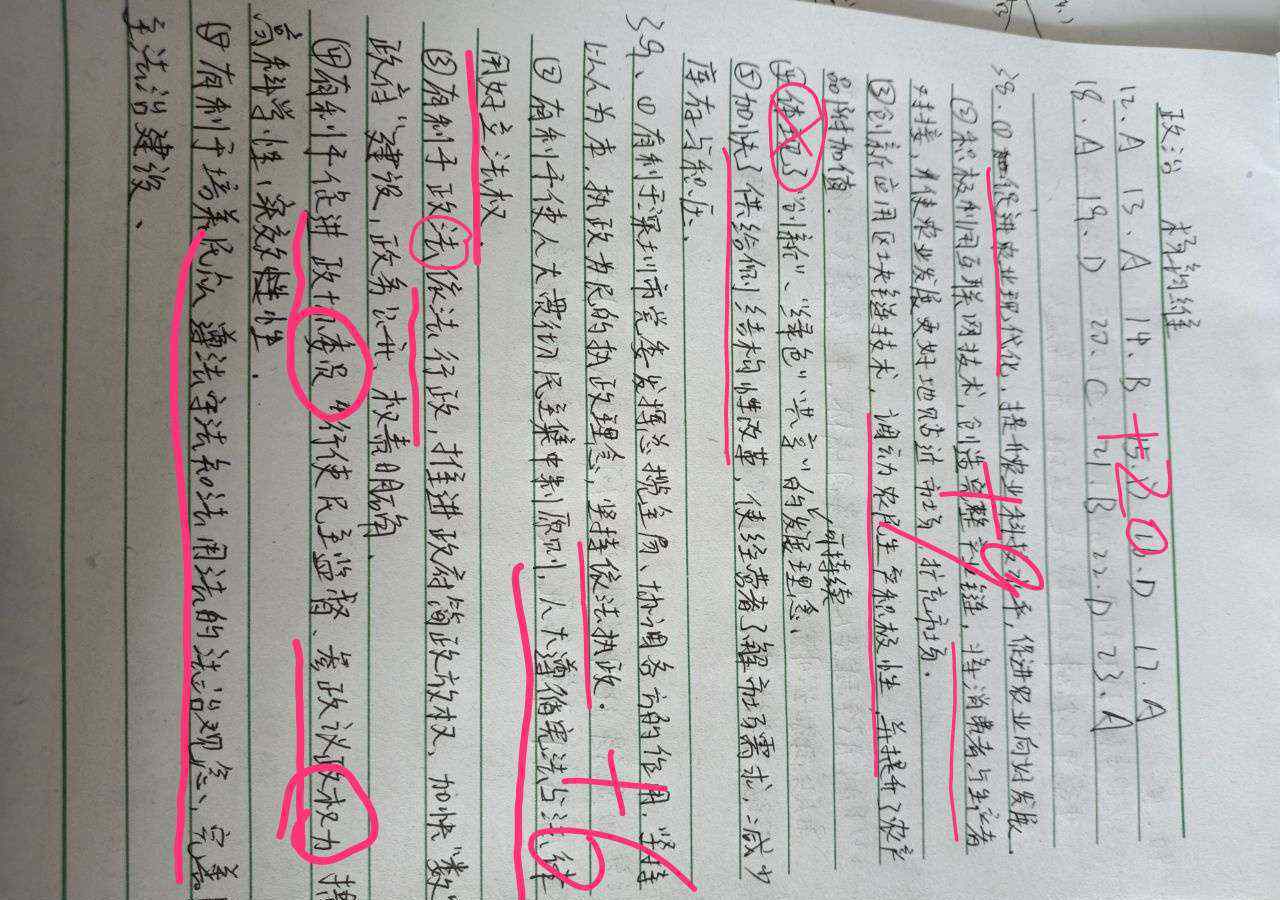 政治 杨钧维
12. A 13. A 14. B 15. D 16. D 17. A
18. A 19. D 20. C 21. B 22. D 23. A
+20
38. ①促进农业现代化，提升农业科技水平，促进农业向好发展.
②积极利用互联网技术，创造完整产业链，将消费者与生产者
对接，使农业发展更好地贴近市场，扩充市场.
+9
③创新应用区块链技术，调动农民生产积极性，并提升了农产
品附加值.
④体现了"创新"、"绿色""共享"可持续的发展理念、
⑤加快了供给侧结构性改革，使经营者了解市场需求，减少
库存与积压.
39. ①有利于深圳市党委发挥总揽全局、协调各方的作用，坚持
以人为本，执政为民的执政理念，坚持依法执政.
+6
②有利于使人大贯彻民主集中制原则，人大遵循宪法与法律
用好立法权.
③有利于政法依法行政，推进政府简政放权，加快"数
政府"建设，政务公开、权责明确.
④有利于促进政协委员行使民主监督、参政议政权力
高科学性、实效性.
⑤有利于培养民众遵法守法知法用法的法治观念、完善
主法治建设.